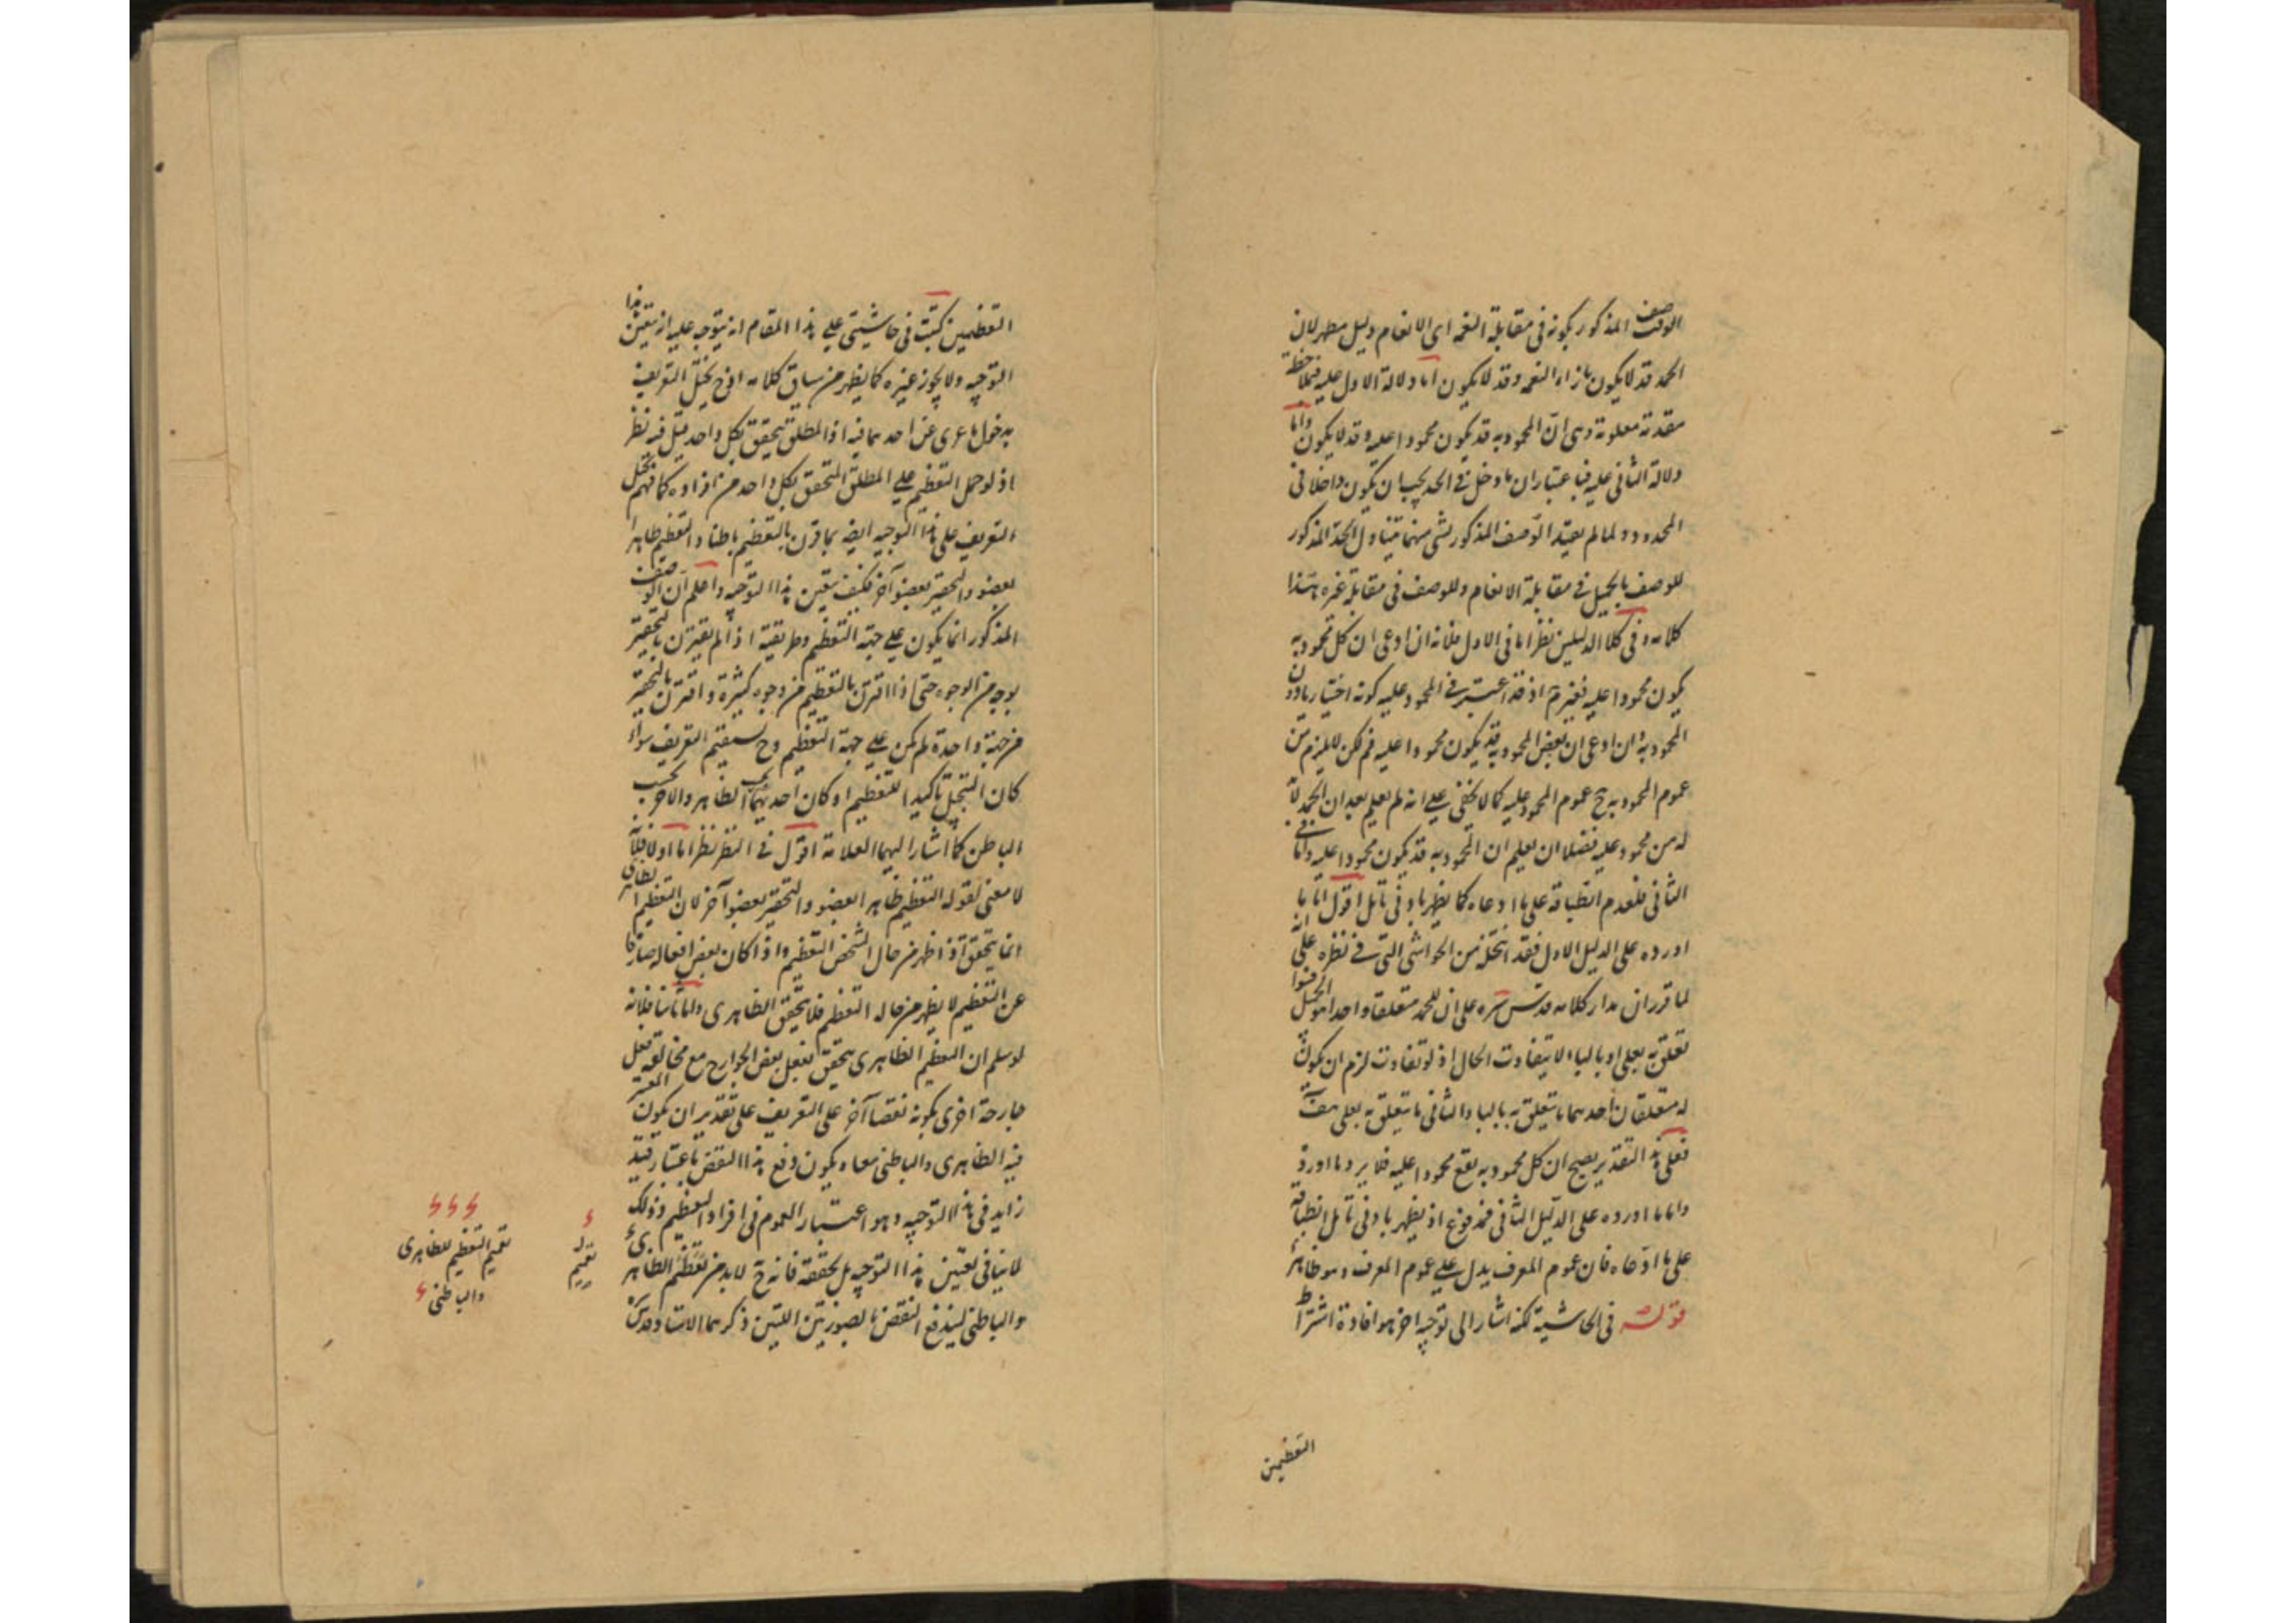 الوصف المذكور بكونه فى مقابلة النعمه اى الانعام دليل مطهر لان
الحمد قد لا يكون بازاء النعمه وقد لا يكون اما دلالة الاول عليه فبملاحظة
مقدمة معلومة وهى ان المحمود به قد يكون محمودا عليه وقد لا يكون واما
دلالة الثانى عليه فباعتبار ان ما دخل فى الحد يجب ان يكون داخلا فى
المحدود ولما لم يقيد الوصف المذكور بشى منهما تناول الحد المذكور
للوصف بالجميل فى مقابلة الانعام وللوصف فى مقابلة غيره هذا
كلامه وفى كلا الدليلين نظر اما فى الاول فلانه ان ادعى ان كل محمود به
يكون محمودا عليه فغير تم اذ قد اعتبر فى المحمود عليه كونه اختياريا دون
المحمود به وان ادعى ان بعض المحمود به قد يكون محمودا عليه فم لكن لا يلزم من
عموم المحمود به ح عموم المحمود عليه كما لا يخفى على انه لم يعلم بعد ان الحمد لا بد
له من محمود عليه فضلا ان يعلم ان المحمود به قد يكون محمودا عليه واما فى
الثانى فلعدم انطباقه على ما ادعاه كما يظهر بادنى تامل اقول اما ما
اورده على الدليل الاول فقد انتحله من الحواشى التى فى نظره على انه
لما قرر ان مدار كلامه قدس سره على ان للحمد متعلقا واحدا هو الجميل فسوا
تعلق به بعلى او بالباء لا يتفاوت الحال اذ لو تفاوت لزم ان يكون
له متعلقان احدهما ما يتعلق به بالبا والثانى ما يتعلق به بعلى هف
فعلى هذا التقدير يصح ان كل محمود به يقع محمودا عليه فلا يرد ما اورد
واما ما اورده على الدليل الثانى فمدفوع اذ يظهر بادنى تامل انطباقه
على ما ادعاه فان عموم المعرف يدل على عموم المعرف وهو ظاهر
قوله فى الحاشية لكنه اشار الى توجيه اخر هو افادة اشتراط
التعظيمين
التعظيمين كتبت فى حاشيتى على هذا المقام انه يتوجه عليه ان تعيين هذا
التوجيه ولا يجوز غيره كما يظهر من سياق كلامه اذ ح يختل التعريف
بدخول ما عرى عن احدهما فيه اذ المطلق يتحقق بكل واحد قيل فيه نظر
اذ لو حمل التعظيم على المطلق المتحقق بكل واحد من افراده كما فهم يختل
التعريف على هذا التوجيه ايضا بما قرن بالتعظيم باطنا والتعظيم ظاهرا
بعضو والتحقير بعضو آخر فكيف يتعين هذا التوجيه واعلم ان الوصف
المذكور انما يكون على جهة التعظيم وطريقته اذا لم يقترن بالتحقير
بوجه من الوجوه حتى اذا اقترن بالتعظيم من وجوه كثيرة واقترن بالتحقير
من جهة واحدة لم يكن على جهة التعظيم وح يستقيم التعريف سواء
كان التبجيل تاكيدا للتعظيم او كان احدهما بحسب الظاهر والاخر بحسب
الباطن كما اشار اليهما العلامة اقول فى النظر نظر اما اولا فلانه
لا معنى لقوله التعظيم ظاهرا بعضو والتحقير بعضو آخر لان التعظيم الظاهرى
انما يتحقق اذا ظهر من حال الشخص التعظيم واذا كان بعض افعاله صارفا
عن التعظيم لا يظهر من حاله التعظيم فلا يتحقق الظاهرى واما ثانيا فلانه
لو سلم ان التعظيم الظاهرى يتحقق بفعل بعض الجوارح مع مخالفه فعل
جارحة اخرى يكون نقضا آخر على التعريف على تقدير ان يكون المعتبر
فيه الظاهرى والباطنى معا ويكون دفع هذا النقض باعتبار قيد
زايد فى هذا التوجيه وهو اعتبار العموم فى افراد التعظيم وذلك
لا ينافى تعين هذا التوجيه بل يحققه فانه ح لا بد من تعظيم الظاهرى
والباطنى ليندفع النقض بالصورتين اللتين ذكرهما الاستاد قدس
تعميم
تعميم التعظيم للظاهرى
والباطنى